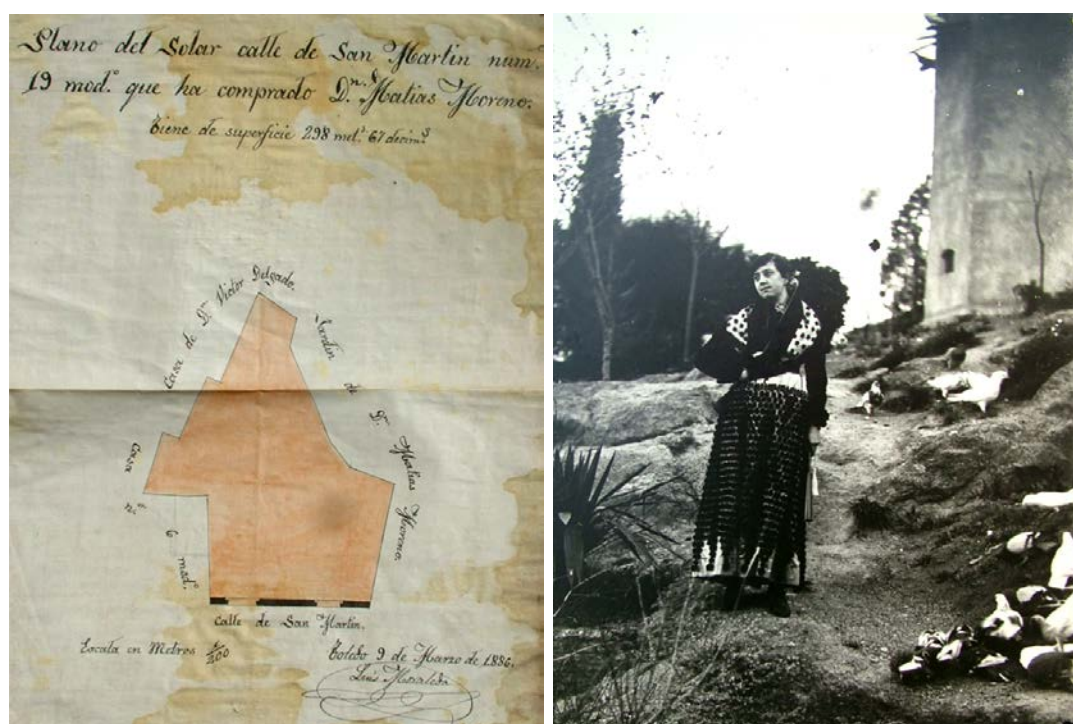 Plano del Solar calle de San Martin num.º
19 mod.º que ha comprado D.n Matias Moreno.
Tiene de superficie 298 met.s 67 decim.s
Casa de D.n Victor Delgado.
Jardin de D.n Matias Moreno.
Casa n.º 6 mod.º
Calle de San Martin.
Escala en Metros 1/200
Toledo 9 de Marzo de 1886.
Luis Moraleda